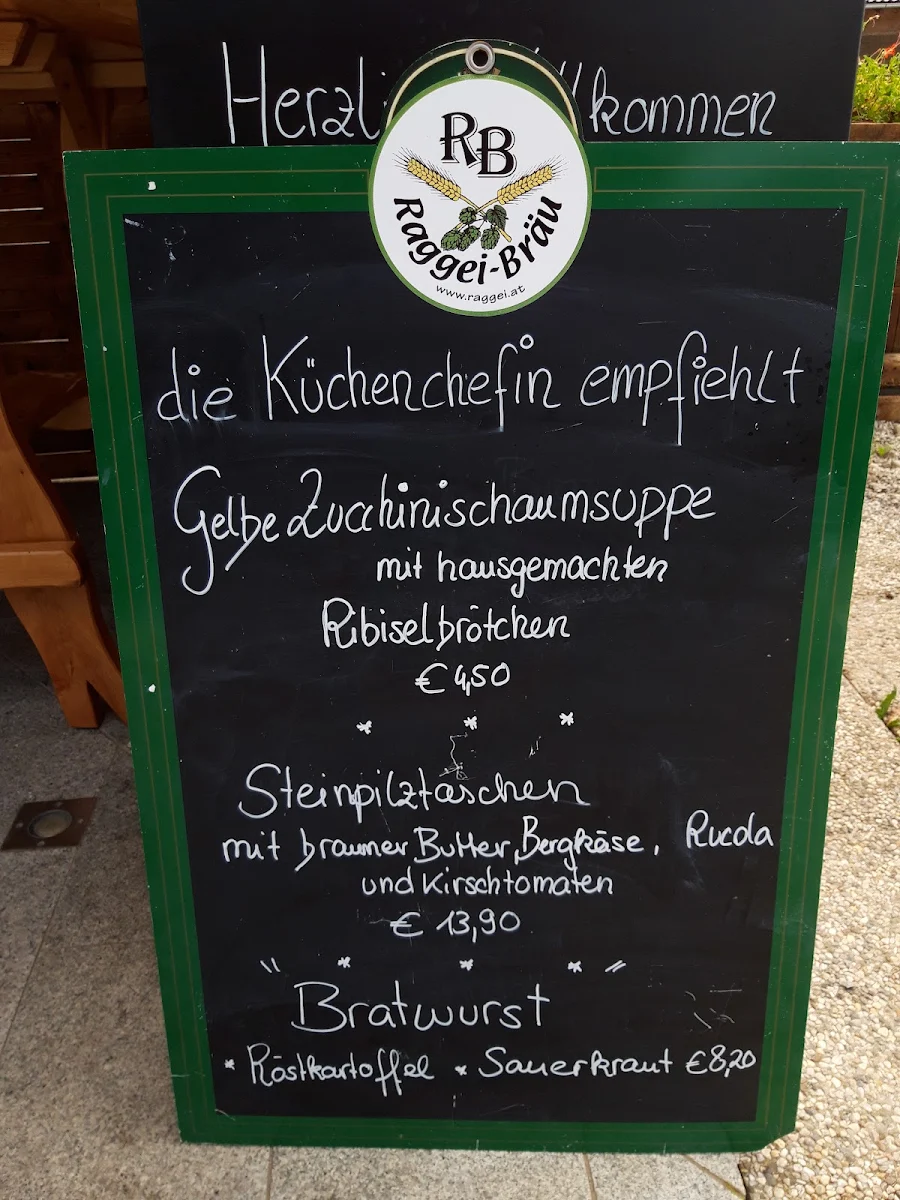 Herzli kommen
RB
Raggei-Bräu
www.raggei.at
die Küchenchefin empfiehlt
Gelbe Zucchinischaumsuppe
mit hausgemachten
Ribiselbrötchen
€ 4,50
* * *
Steinpilztaschen
mit brauner Butter, Bergkäse, Rucola
und Kirschtomaten
€ 13,90
" * * * "
Bratwurst
* Röstkartoffel * Sauerkraut €8,20